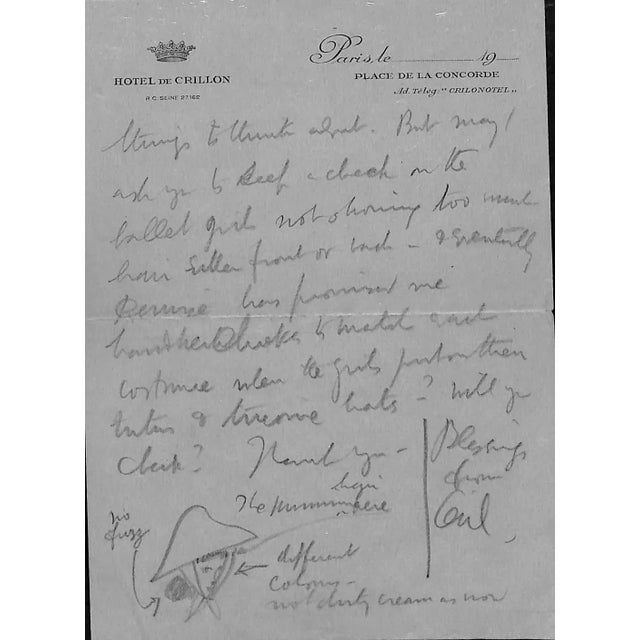 HOTEL DE CRILLON
R.C. SEINE 27.162
Paris, le 19
PLACE DE LA CONCORDE
Ad. Teleg. "CRILONOTEL"
things to think about. But may I
ask you to keep a check on the
ballet girls not showing too much
hair either front or back - & eventually
has promised me
to match each
costume when the girls put on their
tutus & hats - ? Will you
check? Thank you -
Blessings
from
Cecil.
The hair here
no
fuzz
different
colours -
not dirty cream as now